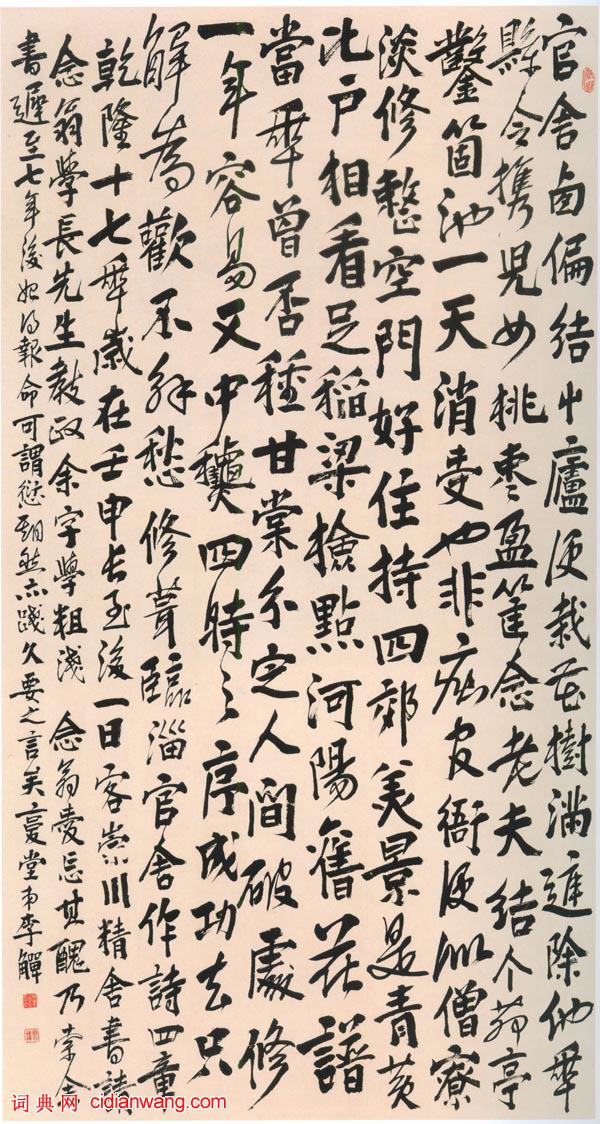 官舍卤偏結屮廬便栽花樹滿庭除他年
縣令携兒女桃棗盈筐念老夫結个茆亭
鑿箇池一天消受也非疵官衙便似僧寮
淡修整空門好住持四郊美景是青黃
比户相看足稲粱檢點河陽舊花譜
當年曾否種甘棠分定人間破處修
一年容易又中穐四時之序成功去只
解為歡不解愁修葺臨淄官舍作詩四章
乾隆十七年歲在壬申長至後一日客崇川精舍書請
念翁學長先生教政余字學粗淺 念翁愛忘其醜乃索余
書遲至七年後始得報命可謂愆期然亦踐久要之言矣复堂弟李觶
词典网 cidianwang.com